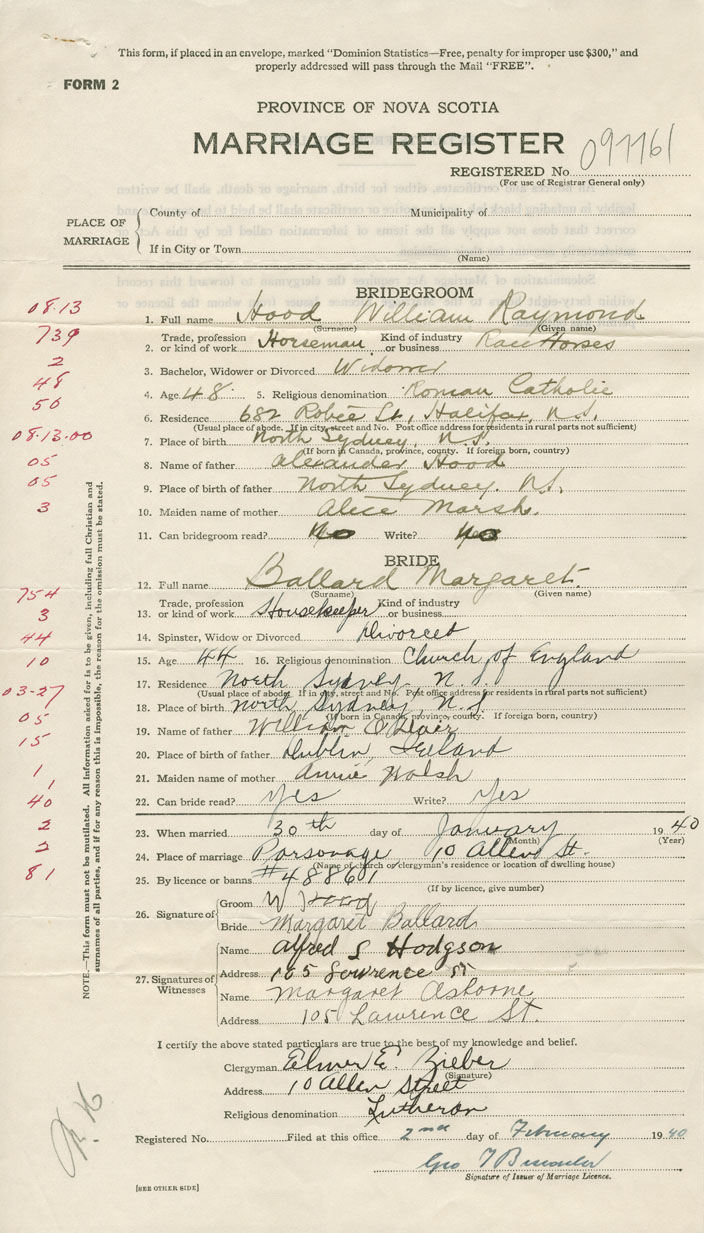 This form, if placed in an envelope, marked "Dominion Statistics—Free, penalty for improper use $300," and
properly addressed will pass through the Mail "FREE".
FORM 2
PROVINCE OF NOVA SCOTIA
MARRIAGE REGISTER
REGISTERED No. 097761
(For use of Registrar General only)
PLACE OF MARRIAGE
County of Municipality of
If in City or Town
(Name)
BRIDEGROOM
08.13
1. Full name Hood William Raymond
(Surname) (Given name)
739
2. Trade, profession or kind of work Horseman Kind of industry or business Race Horses
2
3. Bachelor, Widower or Divorced Widower
48
4. Age 48 5. Religious denomination Roman Catholic
50
6. Residence 682 Robie St., Halifax, N.S.
(Usual place of abode. If in city, street and No. Post office address for residents in rural parts not sufficient)
08.13.00
7. Place of birth North Sydney, N.S.
(If born in Canada, province, county. If foreign born, country)
05
8. Name of father Alexander Hood
05
9. Place of birth of father North Sydney. N.S.
3
10. Maiden name of mother Alice Marsh.
11. Can bridegroom read? Write?
BRIDE
12. Full name Ballard Margaret.
(Surname) (Given name)
754
13. Trade, profession or kind of work Housekeeper Kind of industry or business
3
14. Spinster, Widow or Divorced Divorced
44
15. Age 44 16. Religious denomination Church of England
10
17. Residence North Sydney. N.S.
(Usual place of abode. If in city, street and No. Post office address for residents in rural parts not sufficient)
03-27
18. Place of birth North Sydney, N.S
(If born in Canada, province, county. If foreign born, country)
05
19. Name of father William
15
20. Place of birth of father Dublin, Ireland
1
21. Maiden name of mother Annie Walsh
1
22. Can bride read? Yes Write? Yes
40
23. When married 30th day of January 1940
(Month) (Year)
2
24. Place of marriage Parsonage 10 Allen St.
(Name of church or clergyman's residence or location of dwelling house)
2
81
25. By licence or banns #48861
(If by licence, give number)
26. Signature of
Groom W Hood
Bride Margaret Ballard
27. Signatures of Witnesses
Name Alfred S Hodgson
Address 105 Lawrence St
Name Margaret Osborne
Address 105 Lawrence St.
I certify the above stated particulars are true to the best of my knowledge and belief.
Clergyman Elmer E. Bieber
(Signature)
Address 10 Allen Street
Religious denomination Lutheran
Registered No. Filed at this office 2nd day of February 1940
Geo T
Signature of Issuer of Marriage Licence.
[SEE OTHER SIDE]
NOTE.—This form must not be mutilated. All information asked for is to be given, including full Christian and
surnames of all parties, and if for any reason this is impossible, the reason for the omission must be stated.